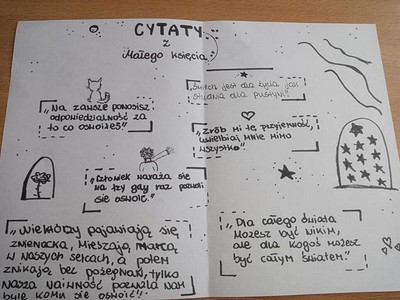 CYTATY
z
Małego księcia
„Na zawsze ponosisz
odpowiedzialność za
to co oswoiłeś"
jest dla życia jak
studnia dla pustyni"
„Zrób mi tę przyjemność,
uwielbiaj mnie mimo
wszystko"
„Człowiek naraża się
na łzy gdy raz pozwoli
się oswoić."
„Niektórzy pojawiają się
znienacka, mieszają, mącą
w naszych sercach, a potem
znikają bez pożegnań, tylko
nasza naiwność pozwala nam
być komu się oswoić"
„Dla całego świata
możesz być nikim,
ale dla kogoś możesz
być całym światem."